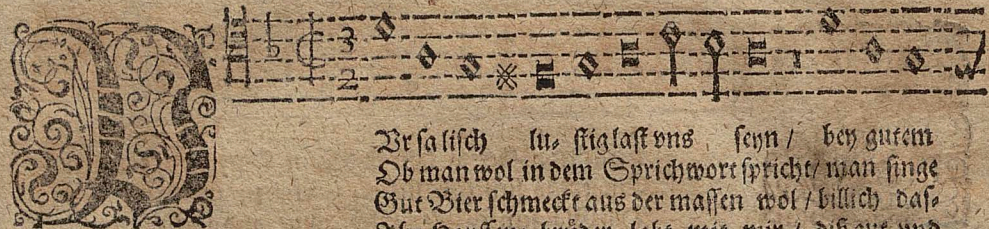 3
2
Vrsalisch lu- stig last vns seyn / bey gutem
Ob man wol in dem Sprichwort spricht / man singe
Gut Bier schmeckt aus der massen wol / billich das-